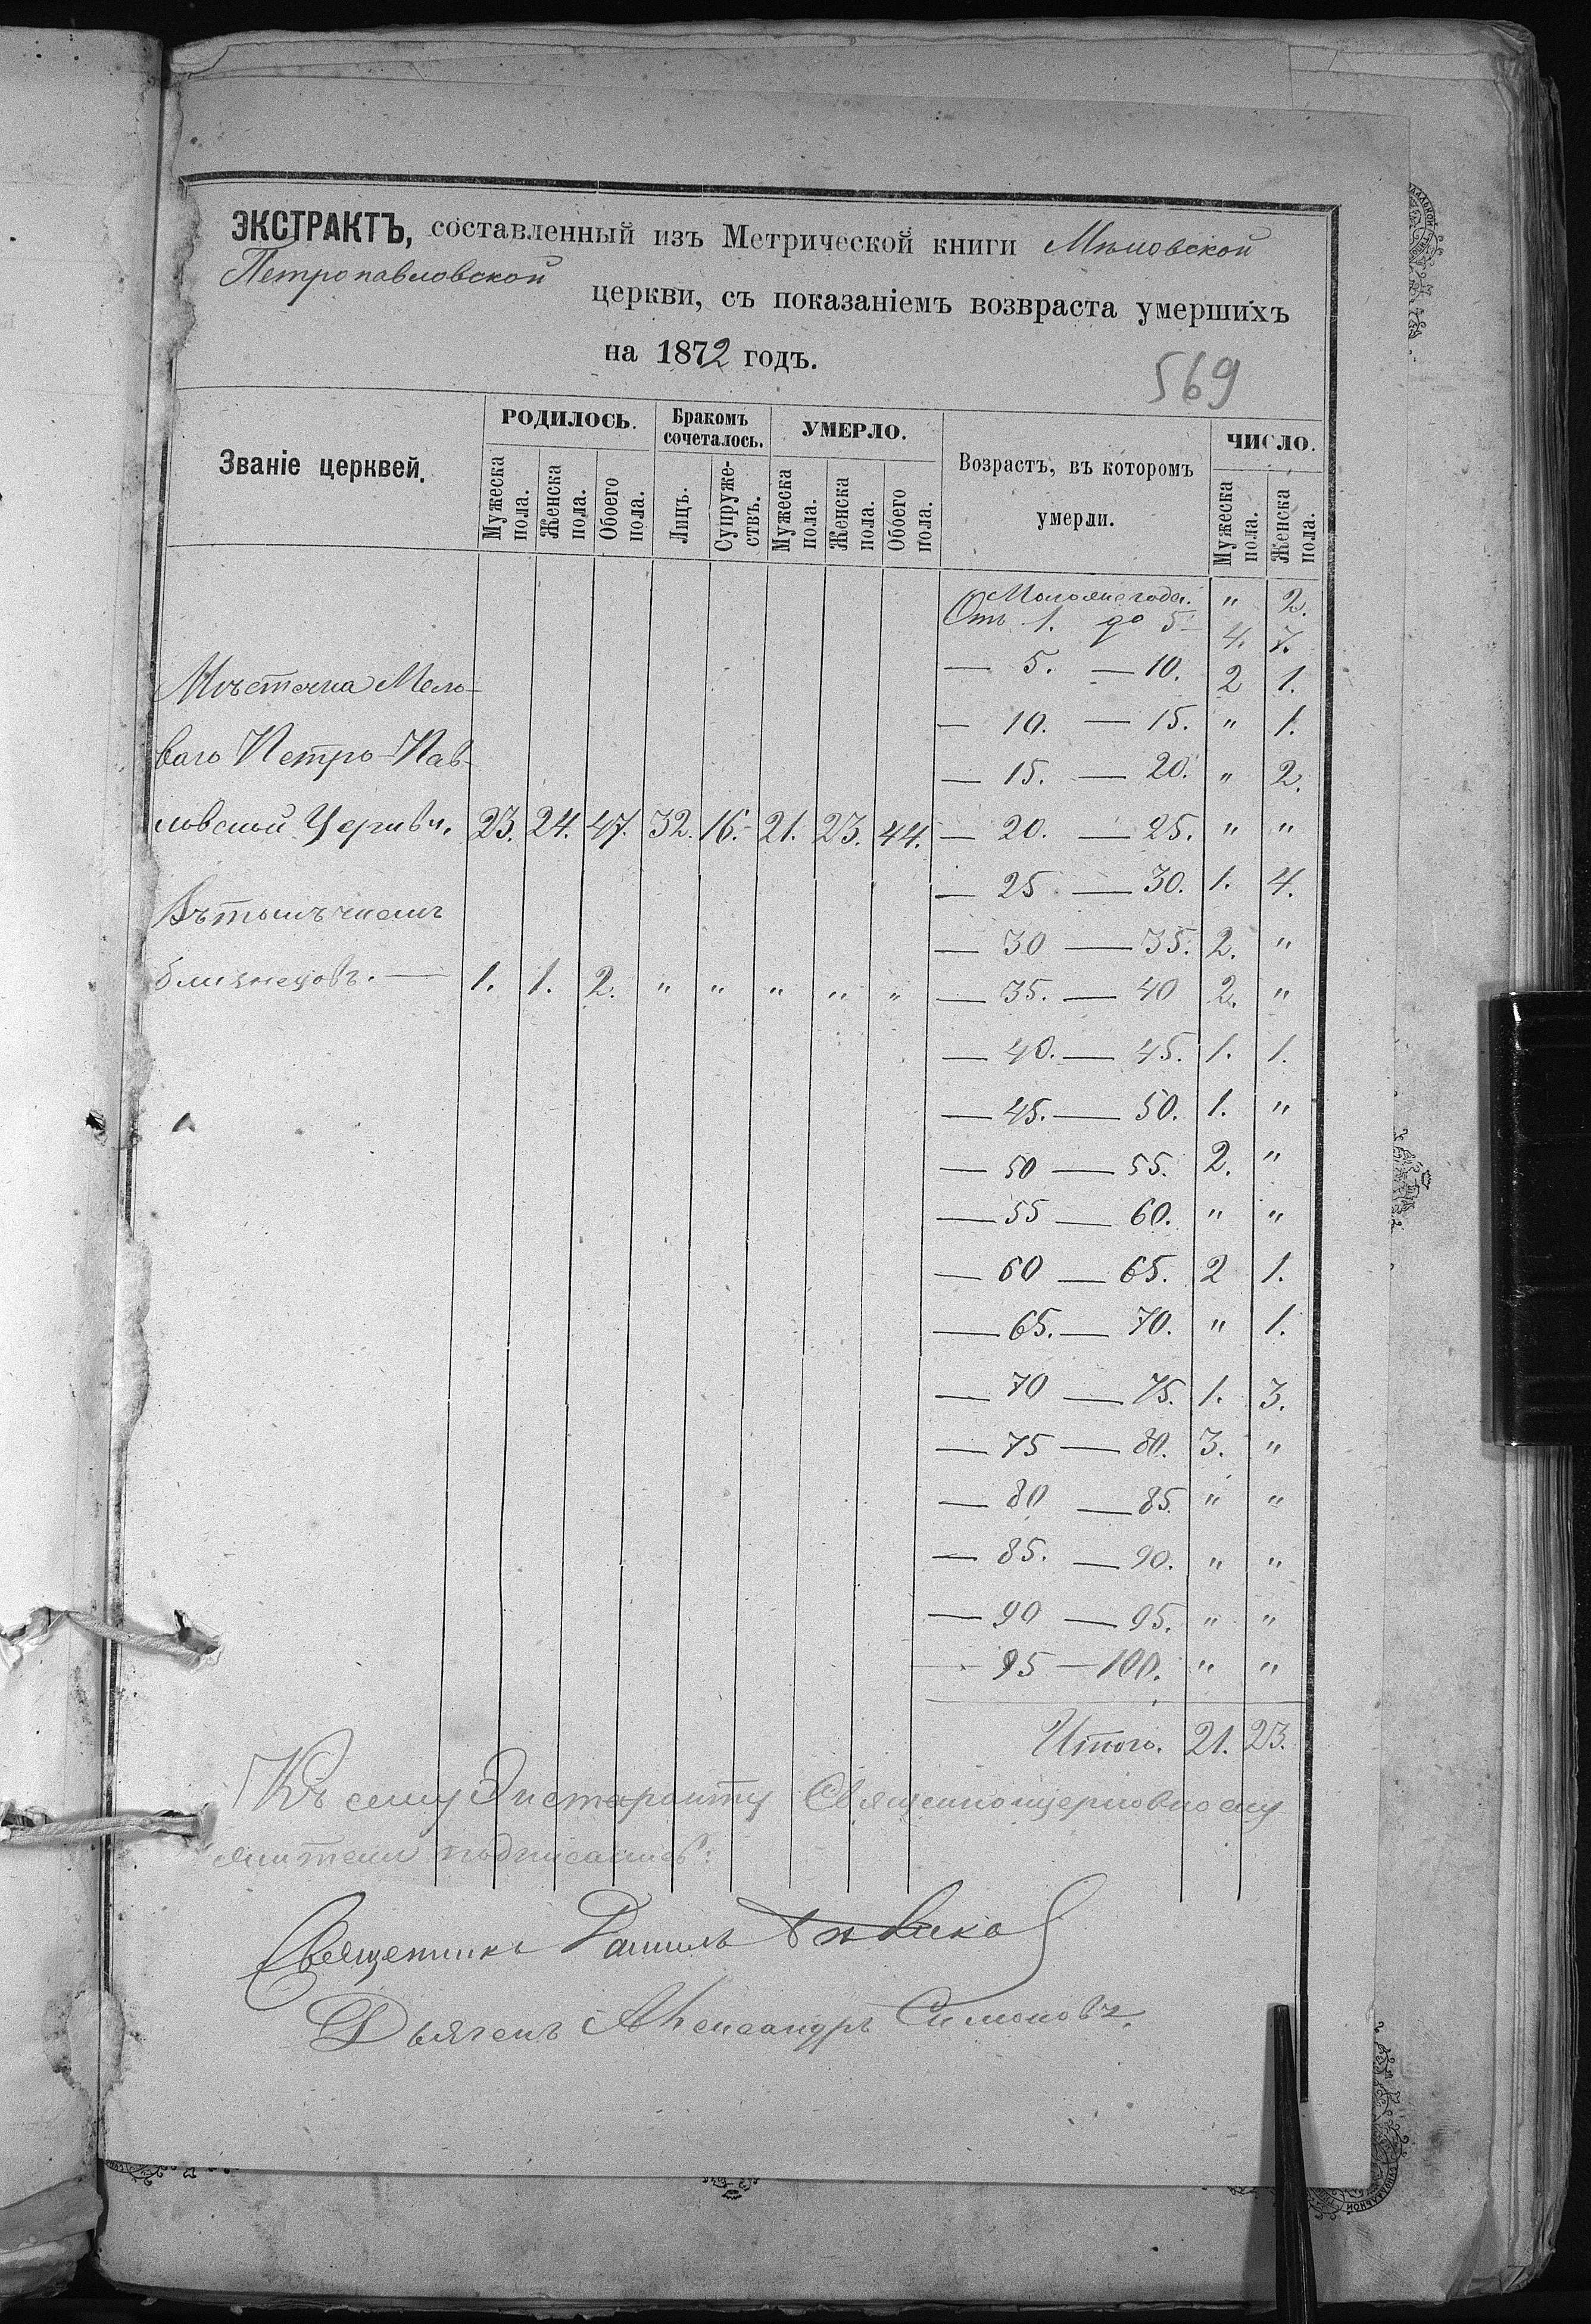 ЭКСТРАКТЪ, составленный изъ Метрической книги Мѣловской
Петропавловской церкви, съ показаніемъ возвраста умершихъ
на 1872 годъ.
569
Званіе церквей.
РОДИЛОСЬ.
Мужеска пола.
Женска пола.
Обоего пола.
Бракомъ сочеталось.
Лицъ.
Супружествъ.
УМЕРЛО.
Мужеска пола.
Женска пола.
Обоего пола.
Возрастъ, въ которомъ умерли.
ЧИСЛО.
Мужеска пола.
Женска пола.
Моложе года. " 2.
Отъ 1. до 5 4. 7.
— 5. — 10. 2 1.
Мѣстечка Мело-
— 10. — 15. " 1.
ваго Петро-Пав-
— 15. — 20. " 2.
ловской Церкви. 23. 24. 47. 32. 16. 21. 23. 44. — 20. — 25. " "
— 25 — 30. 1. 4.
Въ томъ числѣ
— 30 — 35. 2. "
близнецовъ. — 1. 1. 2. " " " " " — 35. — 40 2. "
— 40. — 45. 1. 1.
— 45. — 50. 1. "
— 50 — 55. 2. "
— 55 — 60. " "
— 60 — 65. 2 1.
— 65. — 70. " 1.
— 70 — 75. 1. 3.
— 75 — 80. 3. "
— 80 — 85. " "
— 85. — 90. " "
— 90 — 95. " "
— 95 — 100. " "
Итого. 21. 23.
Къ сему Экстаракту Священноцерковнослу
жители подписались:
Священникъ Даниилъ
Дьячекъ Александръ Симоновъ.